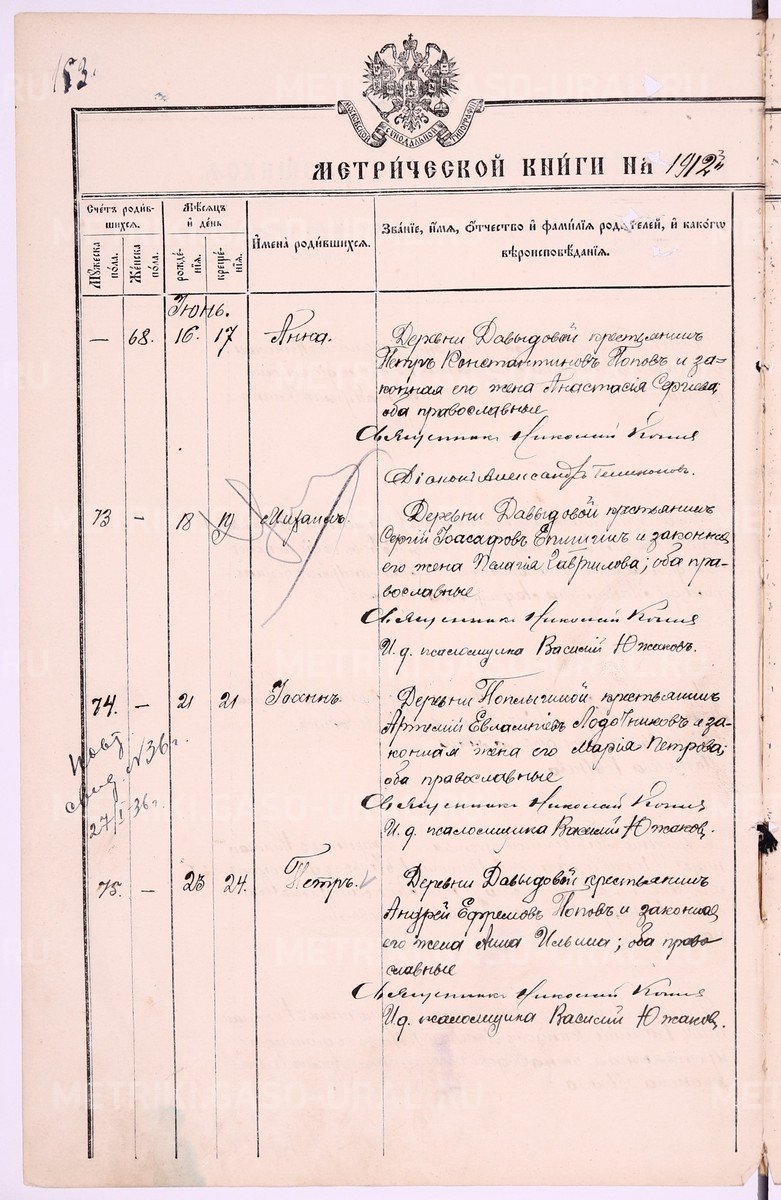 153.
МОСКОВСКОЙ СѴНОДАЛЬНОЙ ТИПОГРАФІИ
МЕТРИ́ЧЕСКОЙ КНИ́ГИ НА 1912
Сче́тъ роди́вшихся.
Мꙋ́жеска по́ла.
Же́нска по́ла.
Мѣ́сѧцъ и҆ де́нь
рожде́нїѧ.
креще́нїѧ.
И҆мена̀ роди́вшихсѧ.
Зва́нїе, и҆́мѧ, ѻ҆́тчество и҆ фами́лїѧ роди́телей, и҆ како́гѡ
вѣроисповѣ́данїѧ.
Іюнь.
— 68. 16. 17 Анна. Деревни Давыдовой крестьянинъ
Петръ Константиновъ Поповъ и за-
конная его жена Анастасія Сергіева;
оба православные
Священникъ Николай
Діаконъ Александръ
73 — 18 19 Михаилъ. Деревни Давыдовой крестьянинъ
Сергій Іоасафовъ Епишинъ и законная
его жена Пелагія Гаврилова; оба пра-
вославные
Священникъ Николай
И. д. псаломщика Василій Южаковъ.
74. — 21 21 Іоаннъ. Деревни крестьянинъ
Артемій Евлампіевъ Лодочниковъ и за-
конная жена его Марія Петрова;
оба православные
Священникъ Николай
И. д. псаломщика Василій Южаковъ.
N 36 г.
27/I 36 г.
75. — 23 24. Петръ. Деревни Давыдовой крестьянинъ
Андрей Ефремовъ Поповъ и законная
его жена Анна Ильина; оба право
славные
Священникъ Николай
И. д. псаломщика Василій Южаковъ.
METRIKI.GASO-URAL.RU